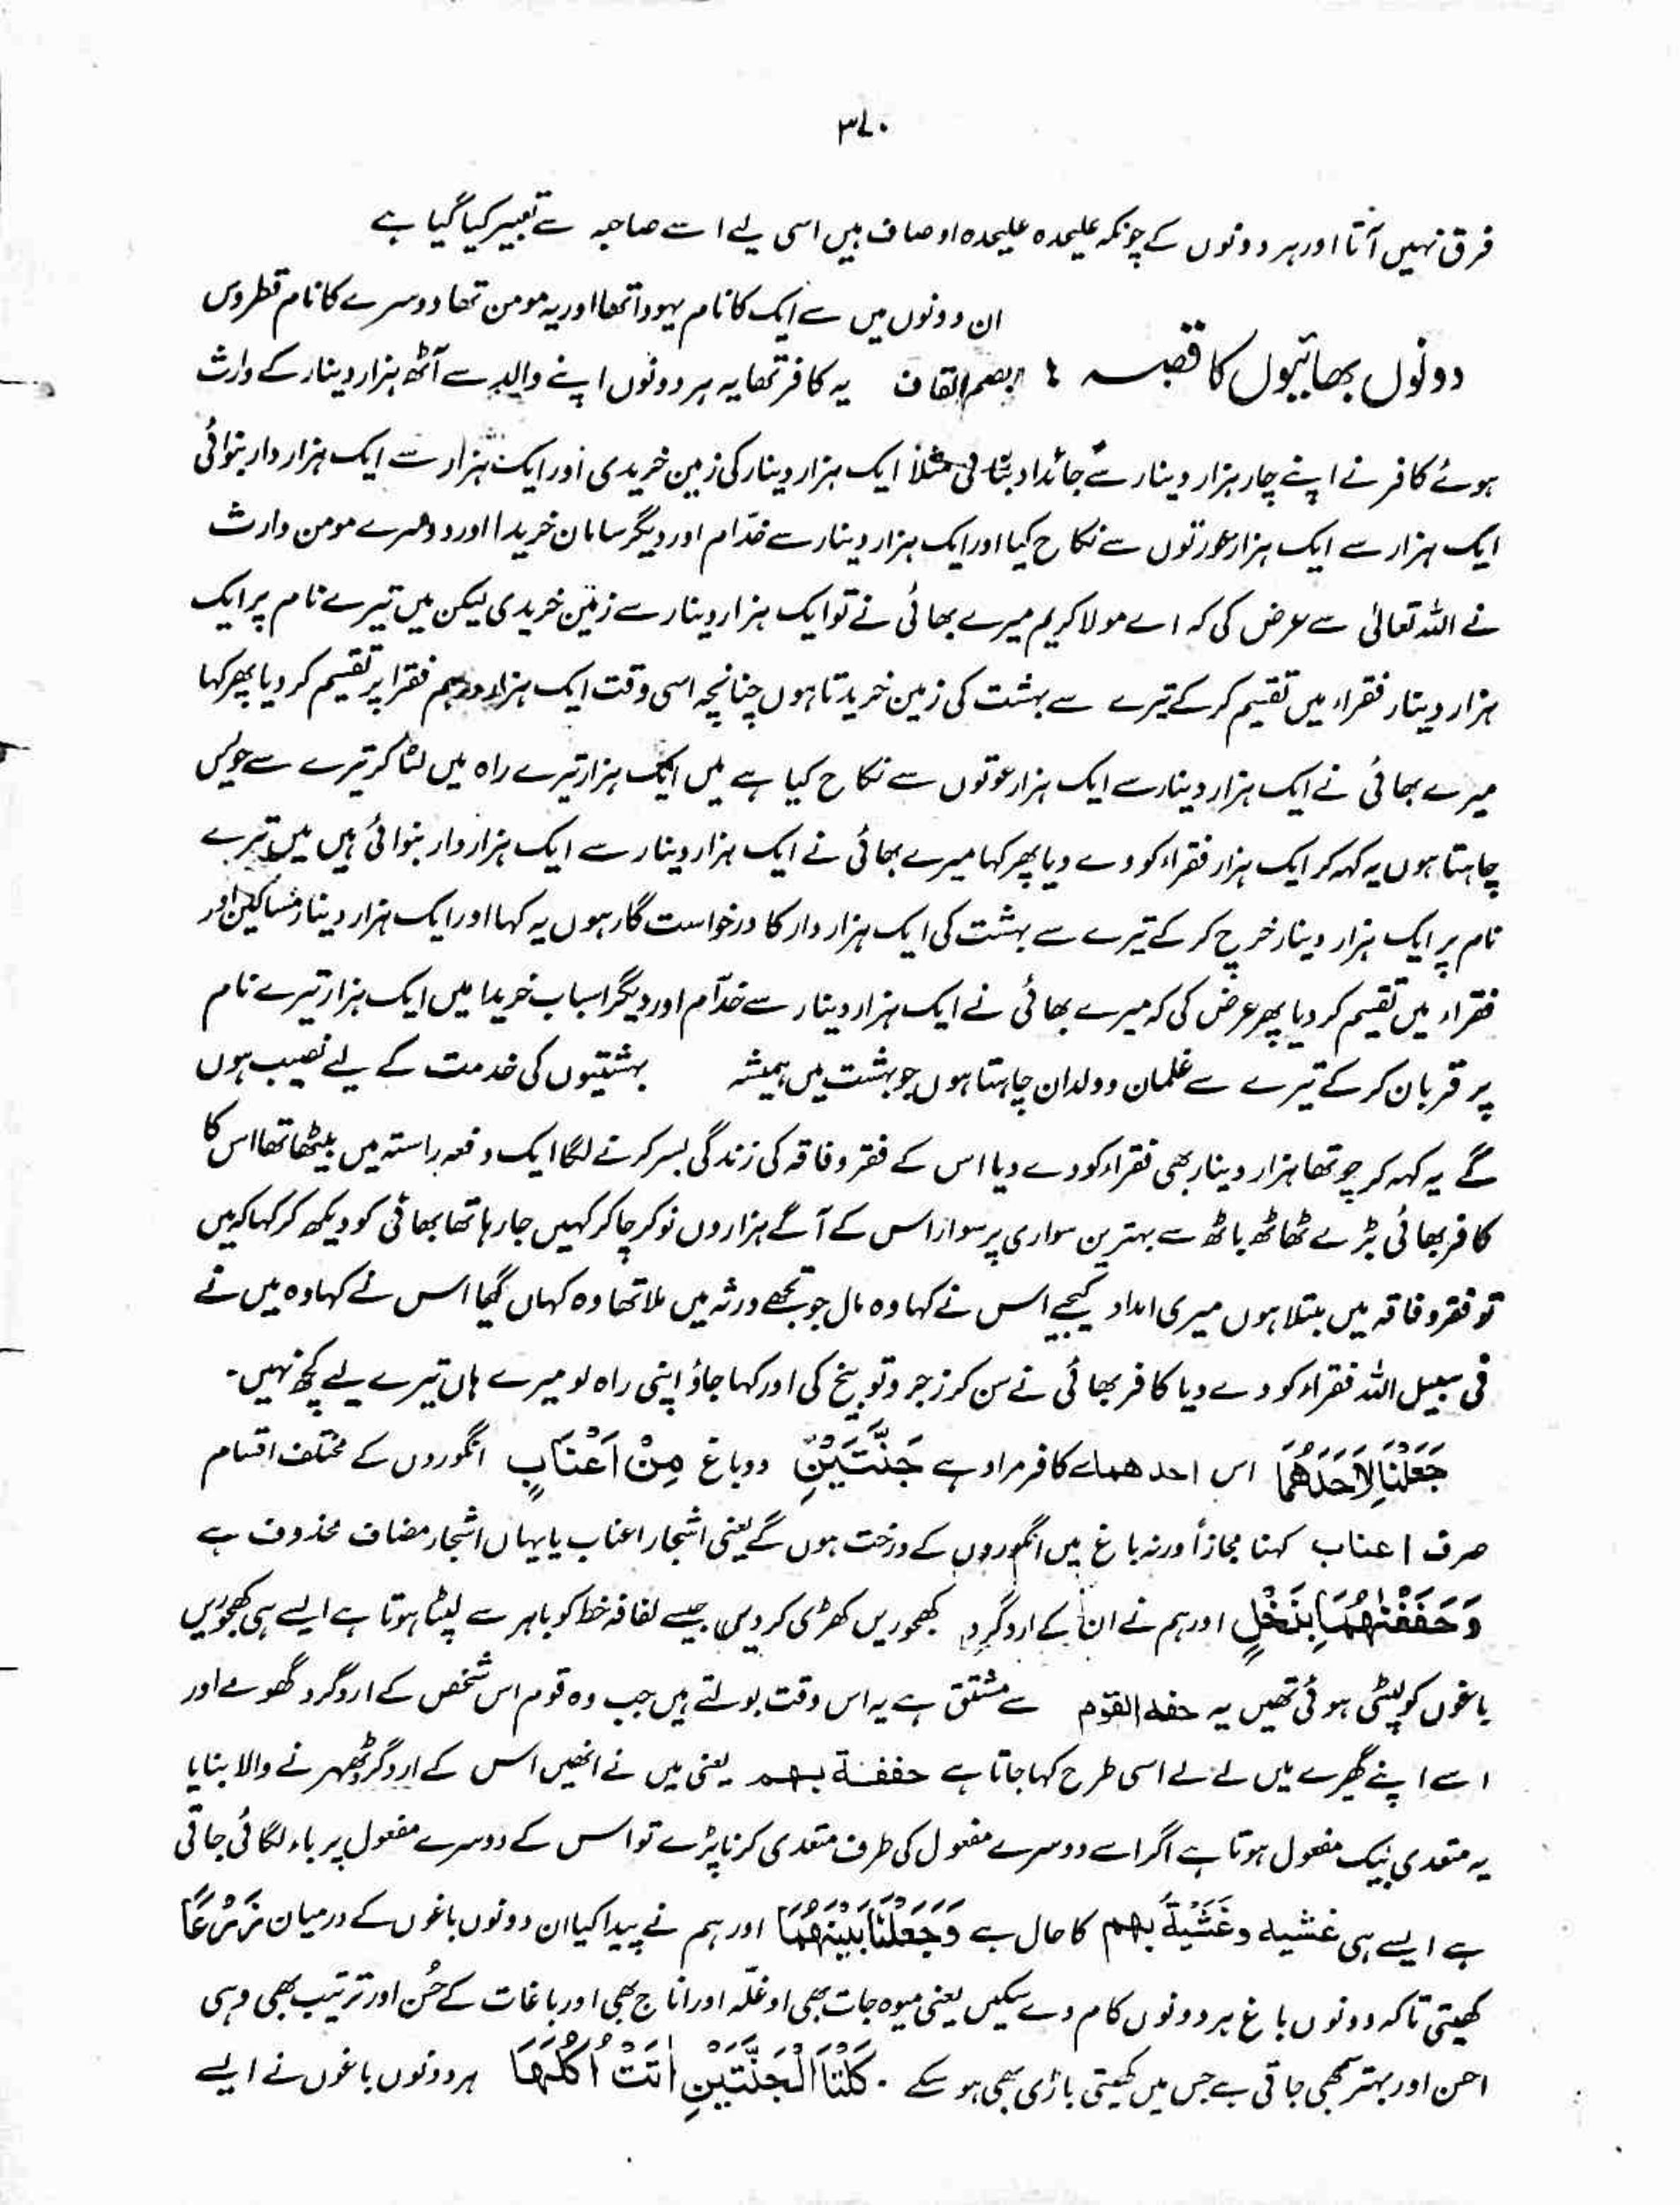 ۳۷۰
فرق نہیں آتا اور ہر دونوں کے چونکہ علیحدہ علیحدہ اوصاف ہیں اسی لیے اسے صاحبہ سے تعبیر کیا گیا ہے
ان دونوں میں سے ایک کا نام یہودا تھا اور یہ مومن تھا دوسرے کا نام قطروس
دونوں بھائیوں کا قصہ : (بضم القاف یہ کافر تھا یہ ہر دونوں اپنے والد سے آٹھ ہزار دینار کے وارث
ہوئے کافر نے اپنے چار ہزار دینار سے جائداد بنائی مثلاً ایک ہزار دینار کی زمین خریدی اور ایک ہزار سے ایک ہزار دار بنوائی
ایک ہزار سے ایک ہزار عورتوں سے نکاح کیا اور ایک ہزار دینار سے خدّام اور دیگر سامان خریدا اور دوسرے مومن وارث
نے اللہ تعالیٰ سے عرض کی کہ اے مولا کریم میرے بھائی نے تو ایک ہزار دینار سے زمین خریدی لیکن میں تیرے نام پر ایک
ہزار دینار فقراء میں تقسیم کر کے تیرے سے بہشت کی زمین خریدتا ہوں چنانچہ اسی وقت ایک ہزار درہم فقرا پر تقسیم کر دیا پھر کہا
میرے بھائی نے ایک ہزار دینار سے ایک ہزار عوتوں سے نکاح کیا ہے میں ایک ہزار تیرے راہ میں لٹا کر تیرے سے حوریں
چاہتا ہوں یہ کہہ کر ایک ہزار فقراء کو دے دیا پھر کہا میرے بھائی نے ایک ہزار دینار سے ایک ہزار دار بنوائی ہیں میں تیرے
نام پر ایک ہزار دینار خرچ کر کے تیرے سے بہشت کی ایک ہزار دار کا درخواست گار ہوں یہ کہا اور ایک ہزار دینار مساکین اور
فقراء میں تقسیم کر دیا پھر عرض کی کہ میرے بھائی نے ایک ہزار دینار سے خدّام اور دیگر اسباب خریدا میں ایک ہزار تیرے نام
پر قربان کر کے تیرے سے غلمان و ولدان چاہتا ہوں جو بہشت میں ہمیشہ بہشتیوں کی خدمت کے لیے نصیب ہوں
گے یہ کہہ کر چوتھا ہزار دینار بھی فقراء کو دے دیا اس کے فقر و فاقہ کی زندگی بسر کرنے لگا ایک دفعہ راستہ میں بیٹھا تھا اس کا
کافر بھائی بڑے ٹھاٹھ باٹھ سے بہترین سواری پر سوار اس کے آگے ہزاروں نوکر چاکر کہیں جا رہا تھا بھائی کو دیکھ کر کہا کہ میں
تو فقر و فاقہ میں مبتلا ہوں میری امداد کیجیے اس نے کہا وہ مال جو تجھے ورثہ میں ملا تھا وہ کہاں گیا اس نے کہا وہ میں نے
فی سبیل اللہ فقراء کو دے دیا کافر بھائی نے سن کر زجر و توبیخ کی اور کہا جاؤ اپنی راہ لو میرے ہاں تیرے لیے کچھ نہیں۔
جَعَلْنَا لِاَحَدِهِمَا اس احدهما سے کافر مراد ہے جَنَّتَيْنِ دو باغ مِنْ اَعْنَابٍ انگوروں کے مختلف اقسام
صرف اعناب کہنا مجازاً ورنہ باغ میں انگوروں کے درخت ہوں گے یعنی اشجار اعناب یا یہاں اشجار مضاف محذوف ہے
وَحَفَفْنٰهُمَا بِنَخْلٍ اور ہم نے ان کے ارد گرد کھجوریں کھڑی کر دیں جیسے لفافہ خط کو باہر سے لپٹا ہوتا ہے ایسے ہی کھجوریں
باغوں کو لپٹی ہوئی تھیں یہ حفه القوم سے مشتق ہے یہ اس وقت بولتے ہیں جب وہ قوم اس شخص کے ارد گرد گھومے اور
اسے اپنے گھیرے میں لے لے اسی طرح کہا جاتا ہے حففته بهم یعنی میں نے انھیں اس کے ارد گرد ٹھہرنے والا بنایا
یہ متعدی بیک مفعول ہوتا ہے اگر اسے دوسرے مفعول کی طرف متعدی کرنا پڑے تو اس کے دوسرے مفعول پر باء لگائی جاتی
ہے ایسے ہی غشیه و غَشَّيْتُهٗ بهم کا حال ہے وَجَعَلْنَا بَيْنَهُمَا اور ہم نے پیدا کیا ان دونوں باغوں کے درمیان زَرْعًا
کھیتی تاکہ دونوں باغ ہر دونوں کام دے سکیں یعنی میوہ جات بھی او غلّہ اور اناج بھی اور باغات کے حُسن اور ترتیب بھی وہی
احسن اور بہتر سمجھی جاتی ہے جس میں کھیتی باڑی بھی ہو سکے ۔ كِلْتَا الْجَنَّتَيْنِ اٰتَتْ اُكُلَهَا ہر دونوں باغوں نے ایسے